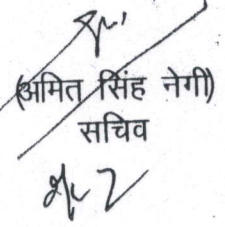 (अमित सिंह नेगी)
सचिव